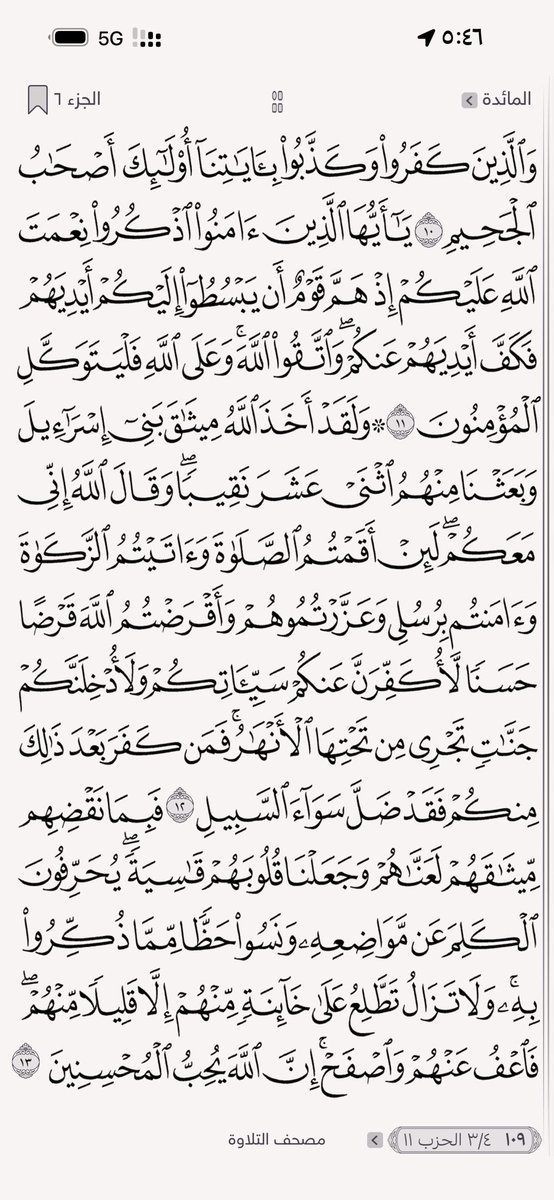 ٥:٤٦ 5G
المائدة الجزء ٦
وَٱلَّذِينَ كَفَرُواْ وَكَذَّبُواْ بِـَٔايَٰتِنَآ أُوْلَٰٓئِكَ أَصۡحَٰبُ
ٱلۡجَحِيمِ ١٠ يَٰٓأَيُّهَا ٱلَّذِينَ ءَامَنُواْ ٱذۡكُرُواْ نِعۡمَتَ
ٱللَّهِ عَلَيۡكُمۡ إِذۡ هَمَّ قَوۡمٌ أَن يَبۡسُطُوٓاْ إِلَيۡكُمۡ أَيۡدِيَهُمۡ
فَكَفَّ أَيۡدِيَهُمۡ عَنكُمۡۖ وَٱتَّقُواْ ٱللَّهَۚ وَعَلَى ٱللَّهِ فَلۡيَتَوَكَّلِ
ٱلۡمُؤۡمِنُونَ ١١ ۞ وَلَقَدۡ أَخَذَ ٱللَّهُ مِيثَٰقَ بَنِيٓ إِسۡرَٰٓءِيلَ
وَبَعَثۡنَا مِنۡهُمُ ٱثۡنَيۡ عَشَرَ نَقِيبٗاۖ وَقَالَ ٱللَّهُ إِنِّي
مَعَكُمۡۖ لَئِنۡ أَقَمۡتُمُ ٱلصَّلَوٰةَ وَءَاتَيۡتُمُ ٱلزَّكَوٰةَ
وَءَامَنتُم بِرُسُلِي وَعَزَّرۡتُمُوهُمۡ وَأَقۡرَضۡتُمُ ٱللَّهَ قَرۡضًا
حَسَنٗا لَّأُكَفِّرَنَّ عَنكُمۡ سَيِّـَٔاتِكُمۡ وَلَأُدۡخِلَنَّكُمۡ
جَنَّٰتٖ تَجۡرِي مِن تَحۡتِهَا ٱلۡأَنۡهَٰرُۚ فَمَن كَفَرَ بَعۡدَ ذَٰلِكَ
مِنكُمۡ فَقَدۡ ضَلَّ سَوَآءَ ٱلسَّبِيلِ ١٢ فَبِمَا نَقۡضِهِم
مِّيثَٰقَهُمۡ لَعَنَّٰهُمۡ وَجَعَلۡنَا قُلُوبَهُمۡ قَٰسِيَةٗۖ يُحَرِّفُونَ
ٱلۡكَلِمَ عَن مَّوَاضِعِهِۦ وَنَسُواْ حَظّٗا مِّمَّا ذُكِّرُواْ
بِهِۦۚ وَلَا تَزَالُ تَطَّلِعُ عَلَىٰ خَآئِنَةٖ مِّنۡهُمۡ إِلَّا قَلِيلٗا مِّنۡهُمۡۖ
فَٱعۡفُ عَنۡهُمۡ وَٱصۡفَحۡۚ إِنَّ ٱللَّهَ يُحِبُّ ٱلۡمُحۡسِنِينَ ١٣
١٠٩ ٣/٤ الحزب ١١ مصحف التلاوة